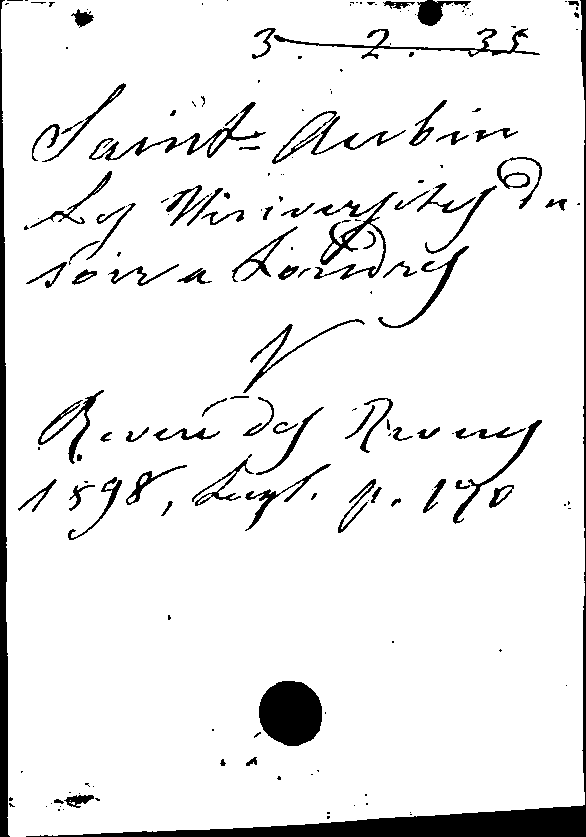 3. 2. 35
Saint-Aubin
Les Universités du
soir a Londres
V
Revue des Revues
1898, Sept. p. 190